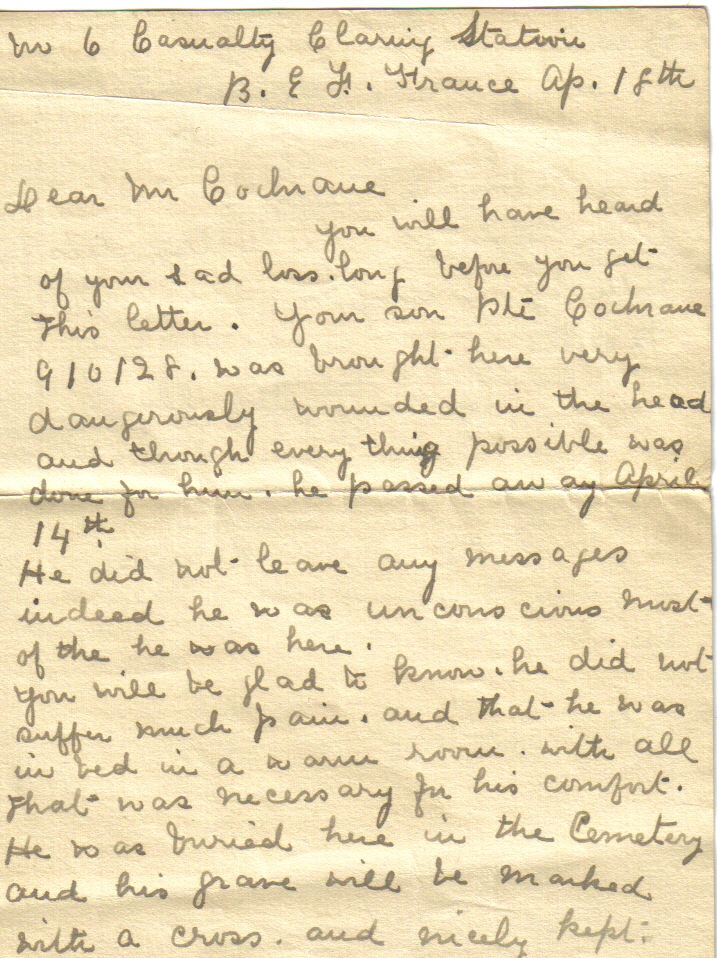 No 6 Casualty Claring Station
B. E F. France Ap. 18th
Dear Mr Cochrane
you will have heard
of your sad loss. long before you get
this letter. Your son Pte Cochrane
910128. was brought here very
dangerously wounded in the head
and though every thing possible was
done for him. he passed away April
14th
He did not leave any messages
indeed he was unconscious most
of the he was here.
you will be glad to know. he did not
suffer much pain. and that he was
in bed in a warm room. with all
that was necessary for his comfort.
He was buried here in the Cemetery
and his grave will be marked
with a cross. and nicely kept.